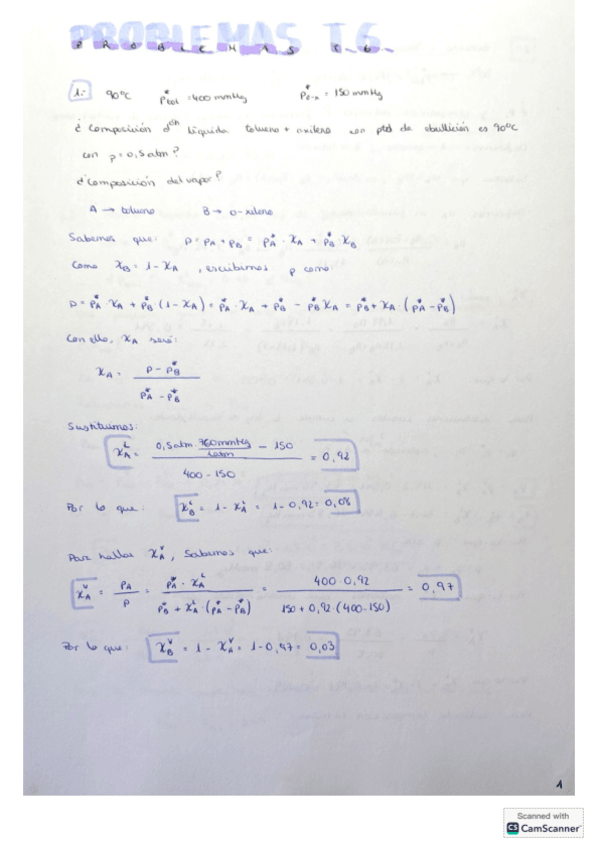 PROBLEMAS T.6
PROBLEMAS T.6.
1.- 90ºC P*tol = 400 mmHg P*o-x = 150 mmHg
¿Composición dón líquida tolueno + oxileno con pto de ebullición es 90ºC
con p = 0,5 atm?
¿Composición del vapor?
A → tolueno B → o-xileno
Sabemos que: p = pA + pB = p*A · xA + p*B · xB
Como xB = 1 - xA , escribimos p como:
p = p*A · xA + p*B (1 - xA) = p*A · xA + p*B - p*B xA = p*B + xA · (p*A - p*B)
Con ello, xA será:
xA = (p - p*B) / (p*A - p*B)
Sustituimos:
xᴸA = (0,5 atm · 760 mmHg / 1 atm - 150) / (400 - 150) = 0,92
Por lo que: xᴸB = 1 - xᴸA = 1 - 0,92 = 0,08
Para hallar xⱽA, sabemos que:
xⱽA = pA / p = (p*A · xᴸA) / (p*B + xᴸA · (p*A - p*B)) = (400 · 0,92) / (150 + 0,92 · (400 - 150)) = 0,97
Por lo que: xⱽB = 1 - xⱽA = 1 - 0,97 = 0,03
1
Scanned with
CS CamScanner